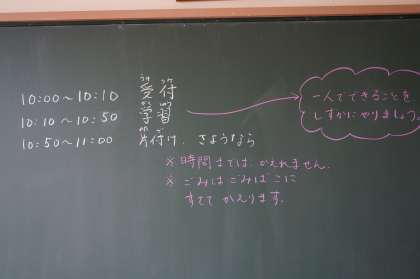 10:00〜10:10 受付
10:10〜10:50 学習
10:50〜11:00 片付け、さようなら
※時間までは、かえれません。
※ごみはごみばこに
すててかえります。
一人でできることを
しずかにやりましょう。